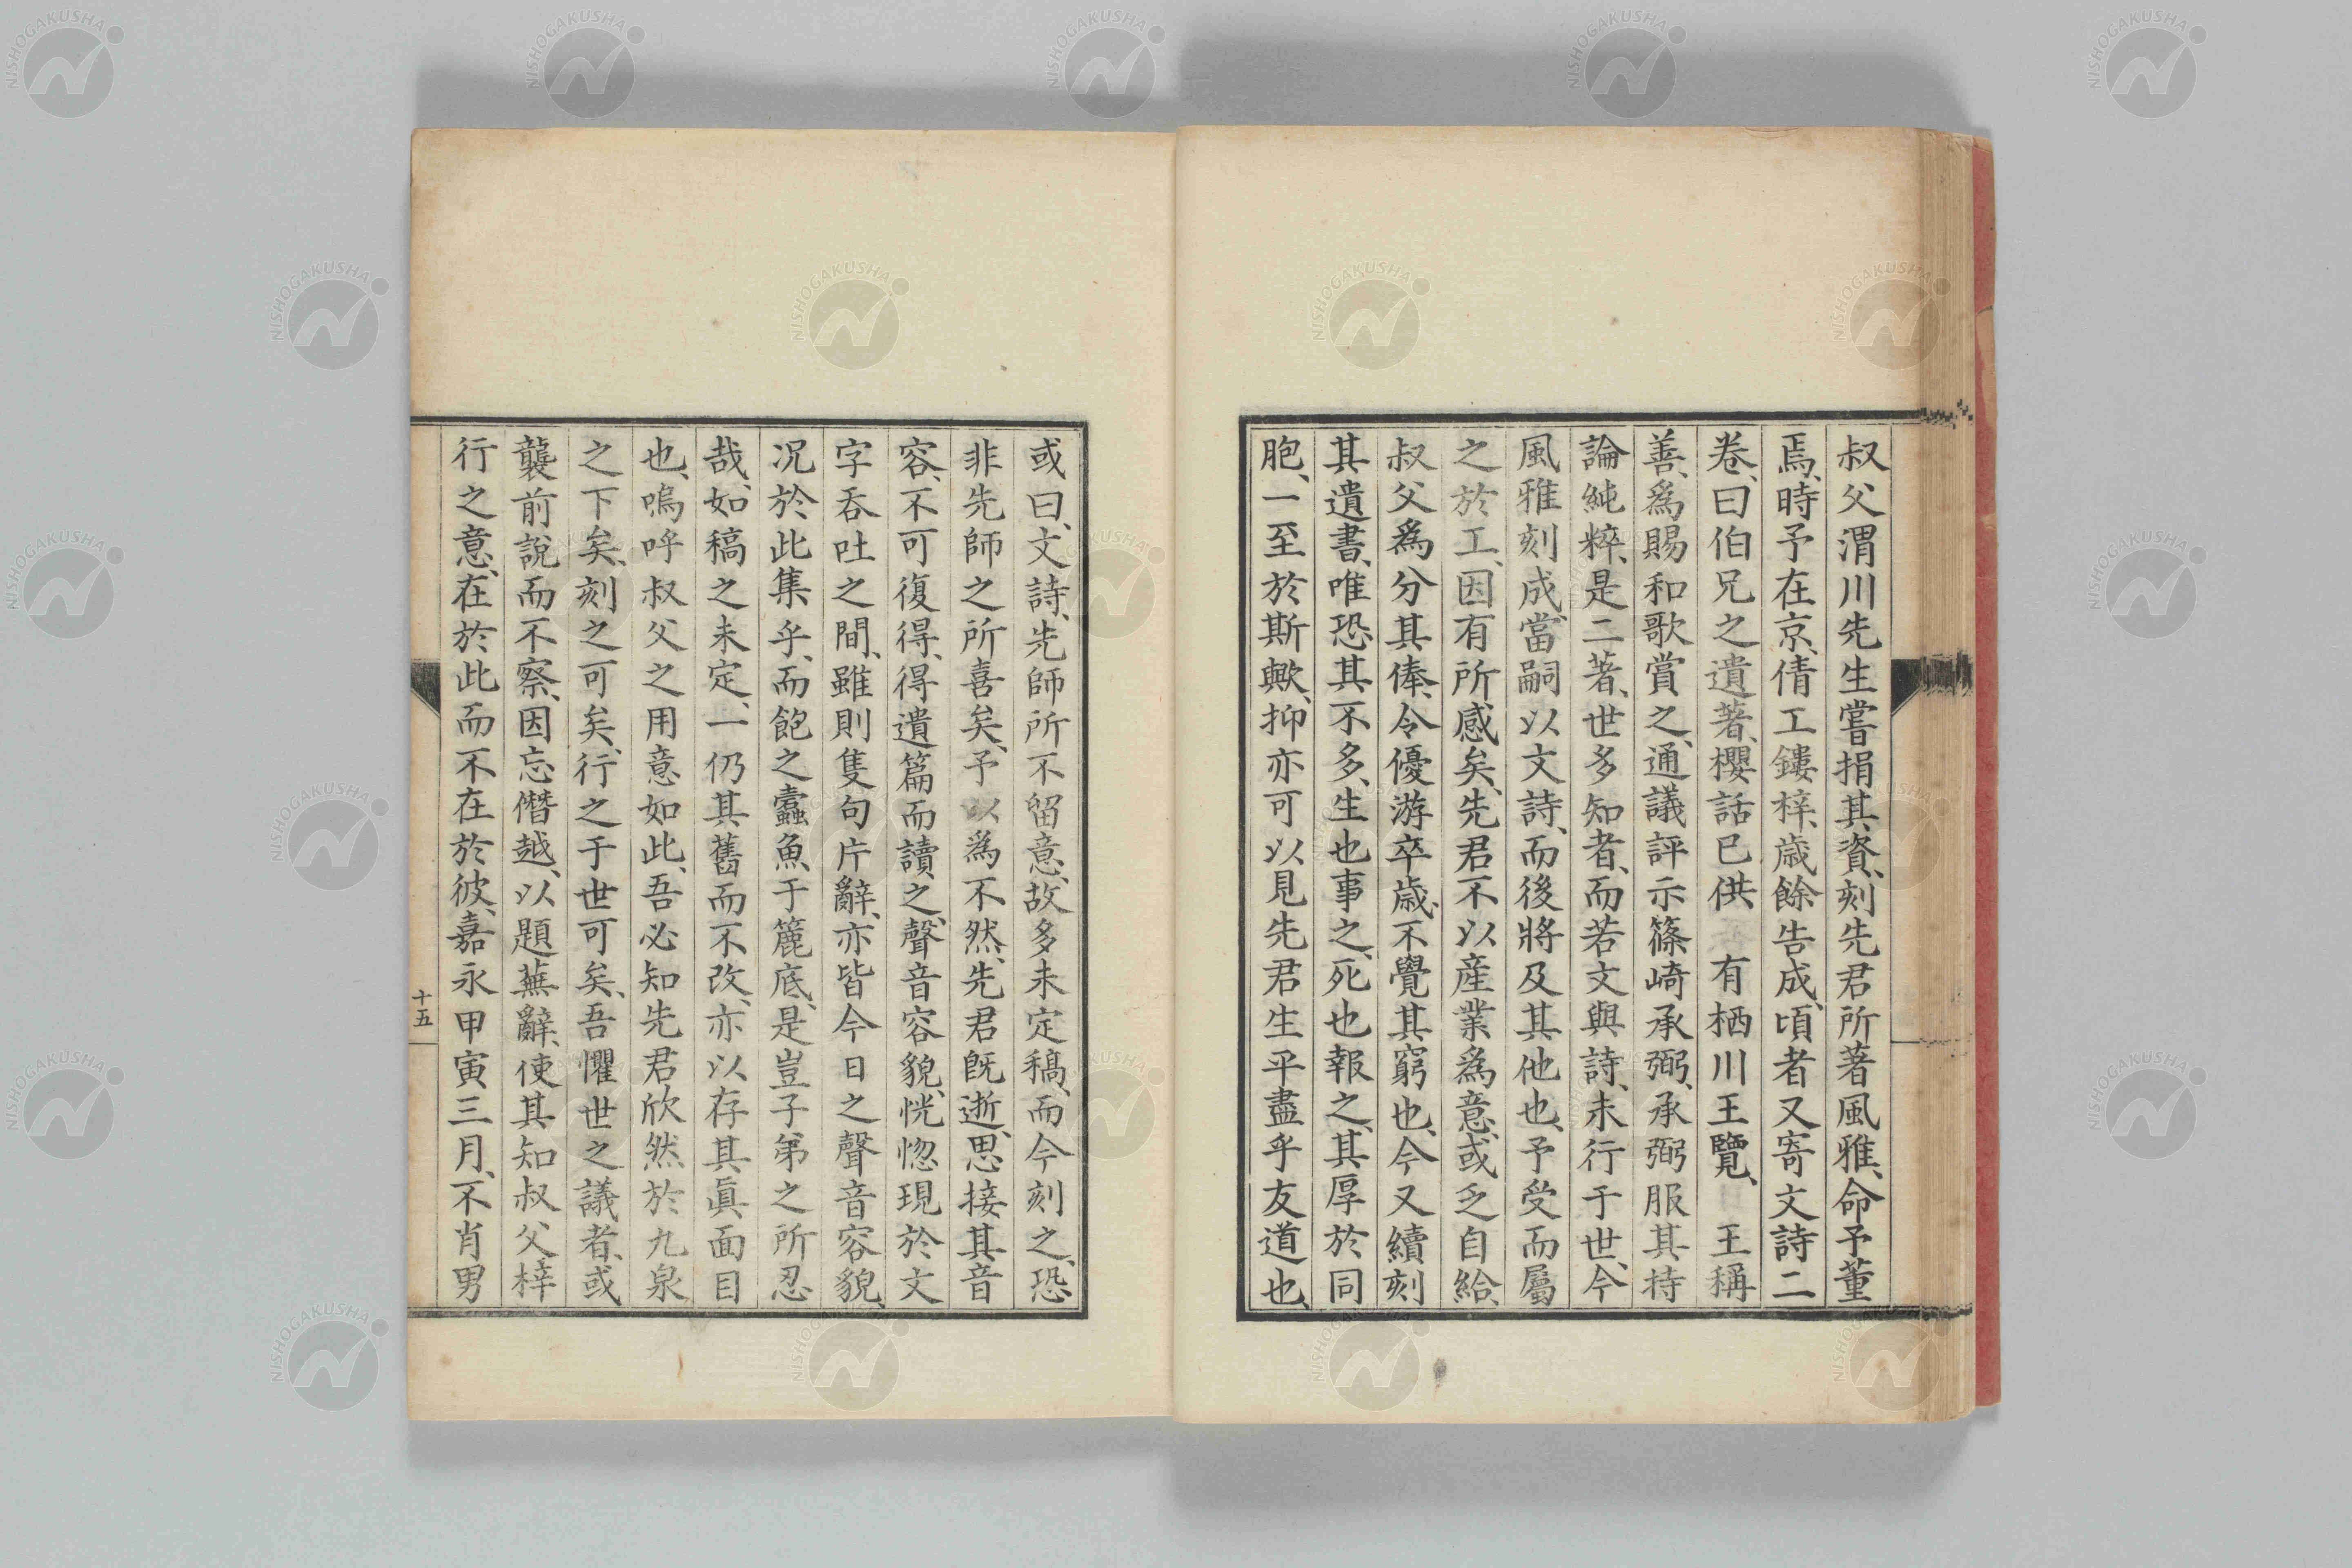 叔父渭川先生嘗捐其資、刻先君所著風雅、命予董
焉、時予在京、倩工鏤梓、歲餘告成、頃者又寄文詩二
卷、曰伯兄之遺著、櫻話已供　有栖川王覽、　王稱
善、爲賜和歌賞之、通議評示篠崎承弼、承弼服其持
論純粹、是二著、世多知者、而若文與詩、未行于世、今
風雅刻成、當嗣以文詩、而後將及其他也、予受而屬
之於工、因有所感矣、先君不以産業爲意、或乏自給、
叔父爲分其俸、令優游卒歲、不覺其窮也、今又續刻
其遺書、唯恐其不多、生也事之、死也報之、其厚於同
胞、一至於斯歟、抑亦可以見先君生平盡乎友道也、
或曰、文詩、先師所不留意、故多未定稿、而今刻之、恐
非先師之所喜矣、予以爲不然、先君既逝、思接其音
容、不可復得、得遺篇而讀之、聲音容貌、恍惚現於文
字吞吐之間、雖則隻句片辭、亦皆今日之聲音容貌、
況於此集乎、而飽之蠹魚于簏底、是豈子弟之所忍
哉、如稿之未定、一仍其舊而不改、亦以存其眞面目
也、嗚呼叔父之用意如此、吾必知先君欣然於九泉
之下矣、刻之可矣、行之于世可矣、吾懼世之議者、或
襲前說而不察、因忘僭越、以題蕪辭、使其知叔父梓
行之意、在於此而不在於彼、嘉永甲寅三月、不肖男
十五
NISHOGAKUSHA